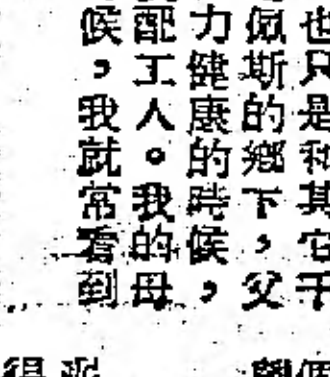 也只是和其它干
佩斯的鄉下，父
力健康的時候，
配工人。我的母
候，我就常看到